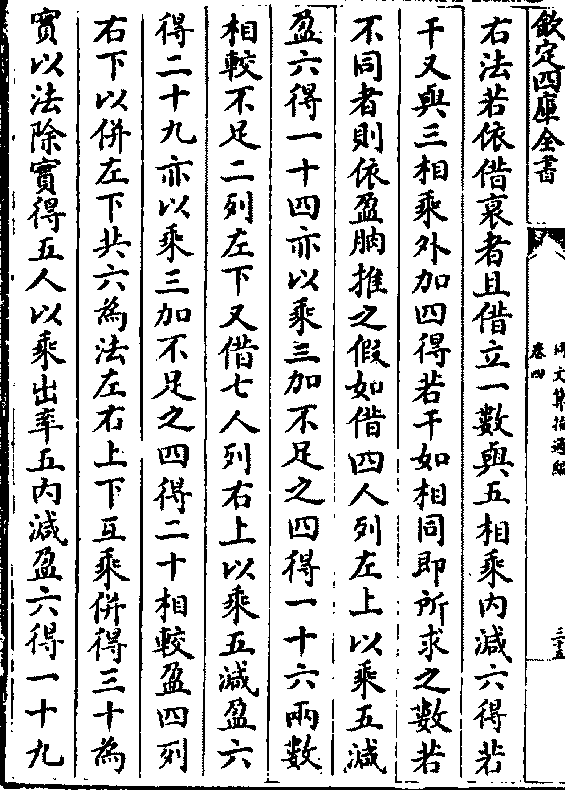 欽定四庫全書
同文算指通編
卷四
三十五
右法若依借衰者且借立一數與五相乘內減六得若
干又與三相乘外加四得若干如相同即所求之數若
不同者則依盈朒推之假如借四人列左上以乘五減
盈六得一十四亦以乘三加不足之四得一十六兩數
相較不足二列左下又借七人列右上以乘五減盈六
得二十九亦以乘三加不足之四得二十相較盈四列
右下以併左下共六為法左右上下互乘併得三十為
實以法除實得五人以乘出率五內減盈六得一十九